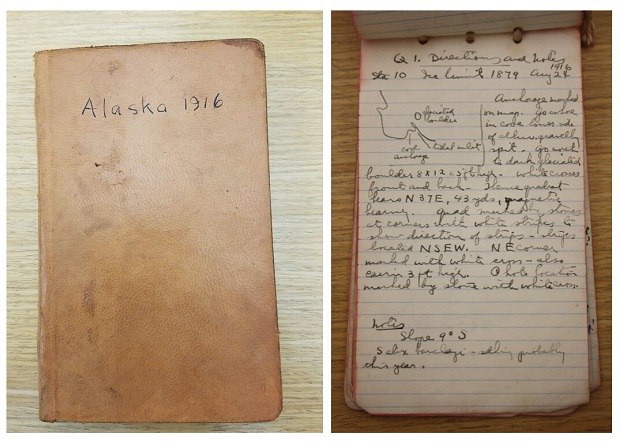 Alaska 1916
Q 1. Directions and Notes
Sta 10 Ice limit 1879 Aug 24
1916
glaciated
boulder
cove
anchorage
tidal inlet
Anchorage marked
on map. Go ashore
in cove lower side
of alluv. gravelly
spit. Go north
to dark glaciated
boulder 8 x 12 x 5 ft high. White crosses
front and back. Thence quadrat
bears N 37E, 43 yds, magnetic
bearing. Quad marked by stones
at corners with white stripes to
show direction of strips - strips
located NSEW. NE corner
marked with white cross - also
cairn 3 ft high. Photo location
marked by stone with white cross
Notes
Slope 9° S
Salix barclayi - seedling probably
this year.